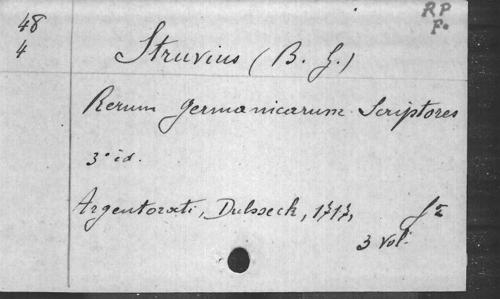 48
4
RP
F.
Struvius (B. G.)
Rerum Germanicarum Scriptores
3ª éd.
Argentorati, Dulsseck, 1717,
3 vol.